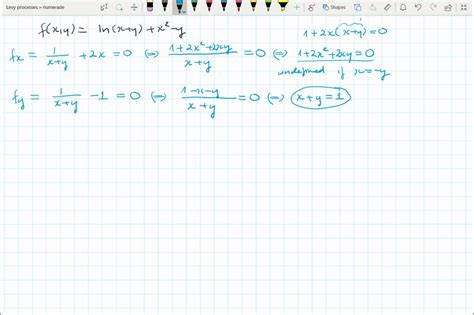 Levy processes » numerade
Shapes
f(x,y) = ln(x+y) + x² - y
1 + 2x(x+y) = 0
fx = 1/(x+y) + 2x = 0 ⇔ (1+2x²+2xy)/(x+y) = 0 ⇔ 1+2x²+2xy = 0
undefined if x = -y
fy = 1/(x+y) - 1 = 0 ⇔ (1-x-y)/(x+y) = 0 ⇔ x+y = 1